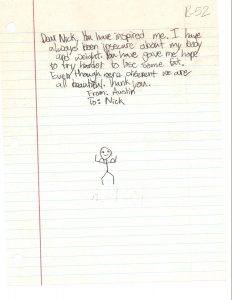 R-52
Dear Nick, You have inspired me. I have
always been insecure about my body
and weight. You have gave me hope
to try harder to lose some fat.
Even though were different we are
all beautiful. Thank you.
From: Austin
To: Nick